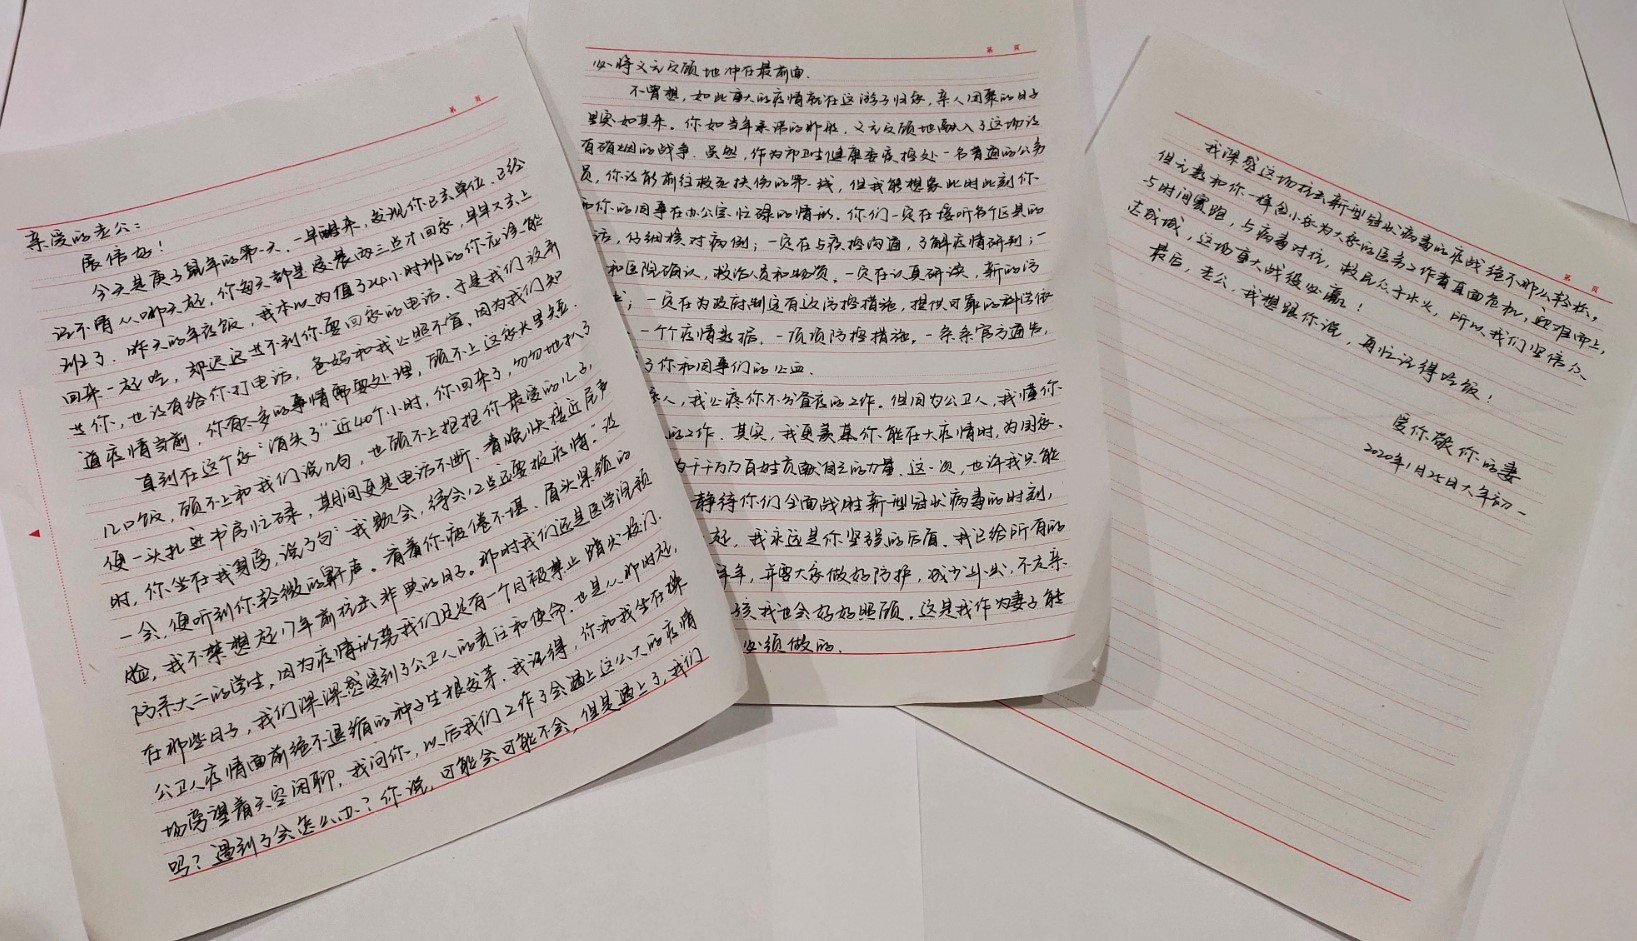 第 页
亲爱的老公：
展信好！
今天是庚子鼠年的第一天，一早醒来，发现你已去单位，已经
记不清从哪天起，你每天都是凌晨两三点才回家，早早又去上
班了。昨天的年夜饭，我本以为值了24小时班的你应该能
回来一起吃，却迟迟等不到你要回家的电话，于是我们没有
等你，也没有给你打电话，爸妈和我心照不宣，因为我们知
道疫情当前，你有太多的事情需要处理，顾不上这家长里短。
直到在这个家“消失了”近40个小时，你回来了，匆匆地扒了
几口饭，顾不上和我们说几句，也顾不上抱抱你最爱的儿子，
便一头扎进书房忙碌，期间更是电话不断。春晚快接近尾声
时，你坐在我身旁，说了句“我歇会，待会12点还要报疫情。”没
一会，便听到你轻微的鼾声。看着你疲倦不堪、眉头深锁的
脸，我不禁想起17年前抗击非典的日子。那时我们还是医学院预
防系大二的学生，因为疫情形势我们足足有一个月被禁止踏出校门，
在那些日子，我们深深感受到了公卫人的责任和使命，也是从那时起，
公卫人疫情面前绝不退缩的种子生根发芽。我记得，你和我坐在操
场旁望着天空闲聊，我问你，以后我们工作了会遇上这么大的疫情
吗？遇到了会怎么办？你说，可能会可能不会，但是遇上了，我们
第 页
必将义无反顾地冲在最前面。
不曾想，如此重大的疫情就在这游子归家，亲人团聚的日子
里突如其来。你如当年承诺的那般，义无反顾地融入了这场没
有硝烟的战争。虽然，作为市卫生健康委疾控处一名普通的公务
员，你没能前往救死扶伤的第一线，但我能想象此时此刻你
和你的同事在办公室忙碌的情形。你们一定在接听各个区县的
话，仔细核对病例；一定在与疾控沟通，了解疫情研判；一
和医院确认，救治人员和物资，一定在认真研读，新的防
；一定在为政府制定有效防控措施，提供可靠的科学依
一个个疫情数据，一项项防控措施，一条条官方通告，
了你和同事们的心血。
人，我心疼你不分宵夜的工作。但因为公卫人，我懂你
的工作。其实，我更羡慕你能在大疫情时，为国家、
为千千万万百姓贡献自己的力量。这一次，也许我只能
静待你们全面战胜新型冠状病毒的时刻，
起，我永远是你坚强的后盾。我已给所有的
年，并要大家做好防护，减少外出，不走亲
孩我也会好好照顾。这是我作为妻子能
必须做的。
第 页
我深感这场抗击新型冠状病毒的疫战绝不那么轻松，
但无数和你一样舍小家为大家的医务工作者直面危机，迎难而上，
与时间赛跑，与病毒对抗，救民众于水火，所以我们坚信众
志成城，这场重大战役必赢！
最后，老公，我想跟你说，再忙记得吃饭！
爱你敬你的妻
2020年1月25日大年初一